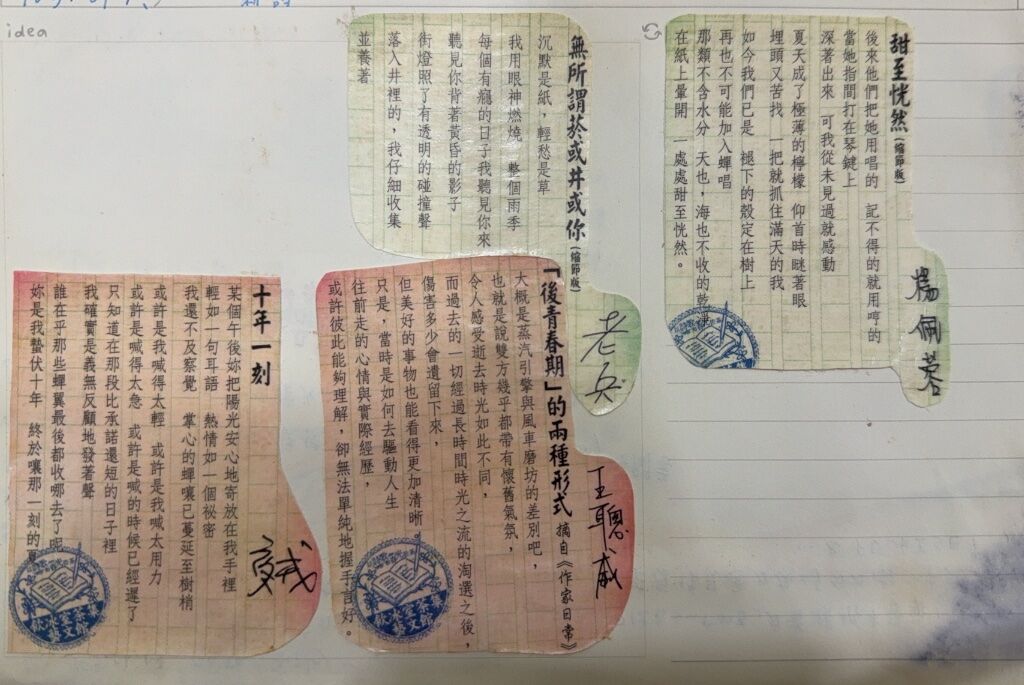 idea
甜至恍然(縮節版)
後來他們把她用唱的 記不得的就用哼的
當她指間打在琴鍵上
深著出來 可我從未見過就感動
夏天成了極薄的檸檬 仰首時瞇著眼
埋頭又苦找 一把就抓住滿天的我
如今我們已是 褪下的殼定在樹上
再也不可能加入蟬唱
那類不含水分 天也，海也不收的乾淨
在紙上暈開 一處處甜至恍然。
楊佩蓉
無所謂菸或井或你(縮節版)
沉默是紙，輕愁是草
我用眼神燃燒 整個雨季
每個有癮的日子我聽見你來
聽見你背著黃昏的影子
街燈照了有透明的碰撞聲
落入井裡的，我仔細收集
並養著
老兵
「後青春期」的兩種形式 摘自《作家日常》
大概是蒸汽引擎與風車磨坊的差別吧，
也就是說雙方幾乎都帶有懷舊氣氛，
令人感受逝去時光如此不同，
而過去的一切經過長時間時光之流的淘選之後，
傷害多少會遺留下來，
但美好的事物也能看得更加清晰。
只是，當時是如何去驅動人生
往前走的心情與實際經歷，
或許彼此能夠理解，卻無法單純地握手言好。
王聰威
十年一刻
某個午後妳把陽光安心地寄放在我手裡
輕如一句耳語 熱情如一個祕密
我還不及察覺 掌心的蟬嚷已蔓延至樹梢
或許是我喊得太輕 或許是我喊太用力
或許是喊得太急 或許是喊的時候已經遲了
只知道在那段比承諾還短的日子裡
我確實是義無反顧地發著聲
誰在乎那些蟬翼最後都收哪去了呢
妳是我蟄伏十年 終於嚷那一刻的夏